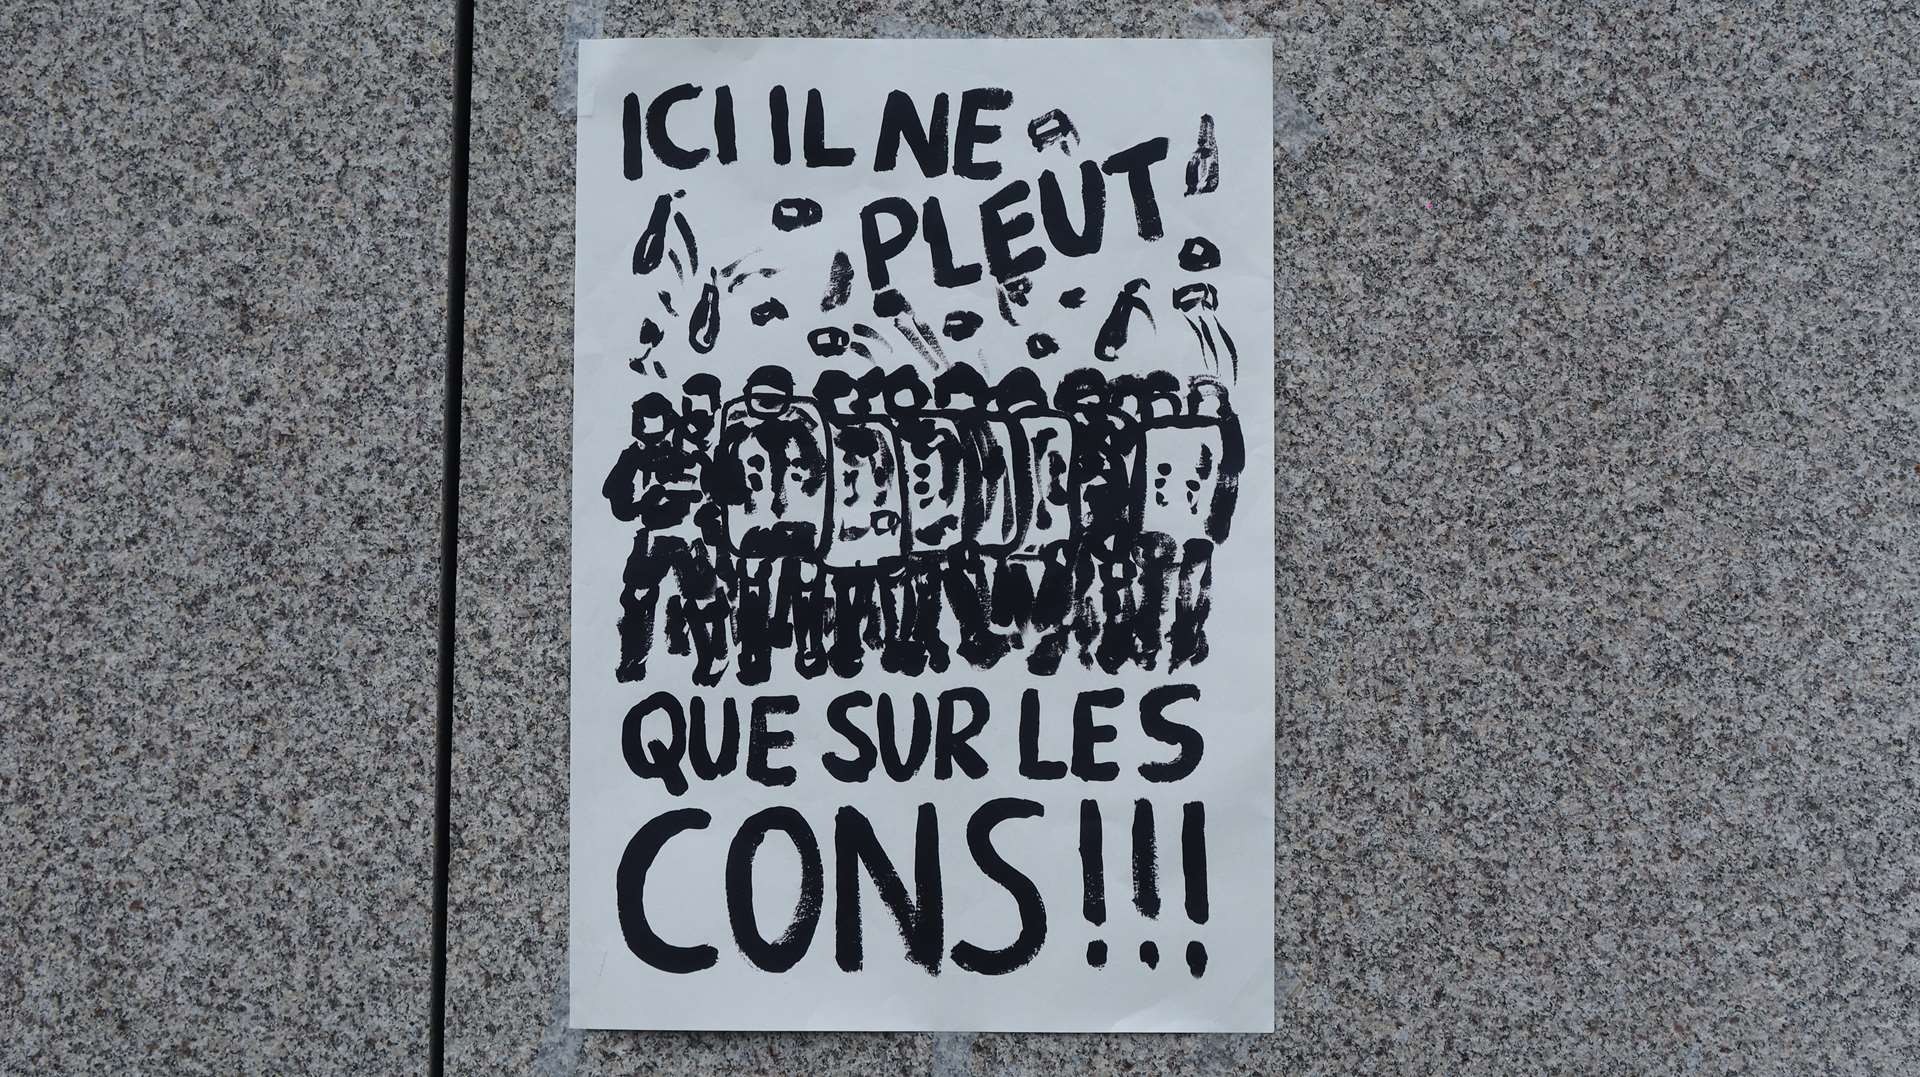 ICI IL NE
PLEUT
QUE SUR LES
CONS!!!